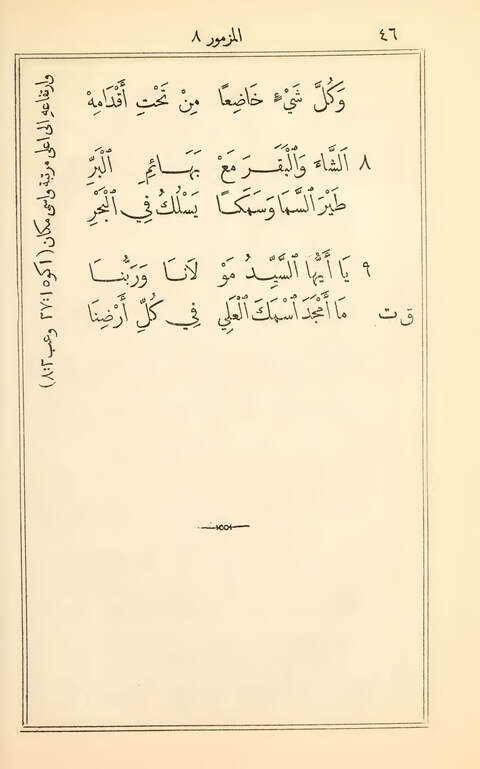 ٤٦ المزمور ٨
وَكُلَّ شَيْءٍ خَاضِعًا مِنْ تَحْتِ أَقْدَامِهْ
٨ اَلشَّاءَ وَالْبَقَرَ مَعْ بَهَائِمِ الْبَرِّ
طَيْرَ السَّمَا وَسَمَكًا يَسْلُكُ فِي الْبَحْرِ
٩ يَا أَيُّهَا السَّيِّدُ مَوْلَانَا وَرَبُّنَا
ق ت مَا أَمْجَدَ اسْمَكَ الْعَلِي فِي كُلِّ أَرْضِنَا
وارتفاعه الى اعلى مرتبة واسمى مكان (١كو١٥:٢٧ وعب٢:٨)